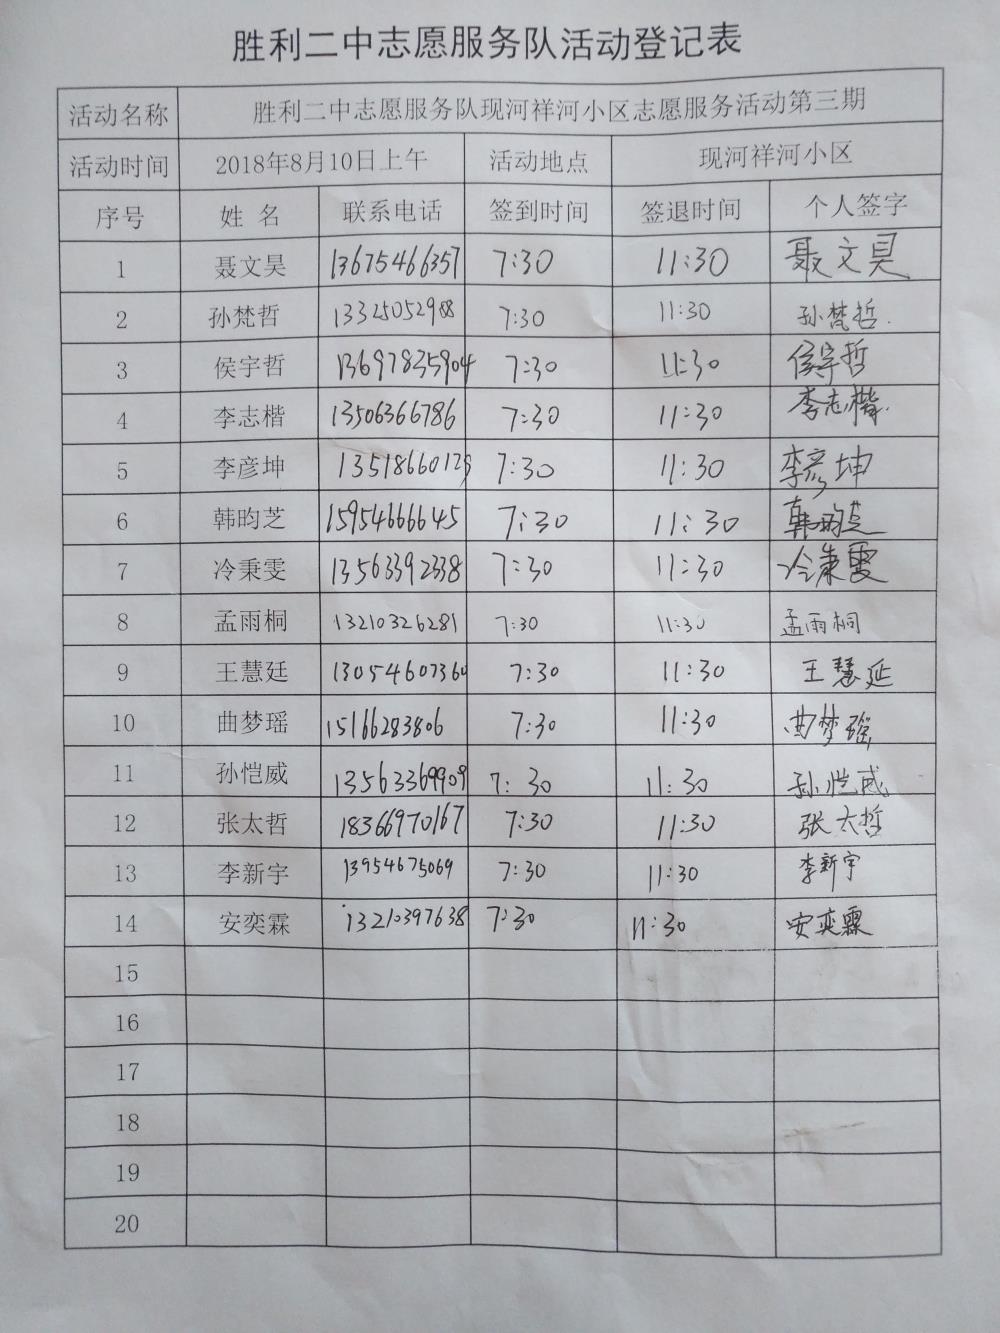 胜利二中志愿服务队活动登记表
活动名称 胜利二中志愿服务队现河祥河小区志愿服务活动第三期
活动时间 2018年8月10日上午 活动地点 现河祥河小区
序号 姓 名 联系电话 签到时间 签退时间 个人签字
1 聂文昊 13675466357 7:30 11:30 聂文昊
2 孙梵哲 13325052988 7:30 11:30 孙梵哲.
3 侯宇哲 13697835904 7:30 11:30 侯宇哲
4 李志楷 13506366786 7:30 11:30 李志楷.
5 李彦坤 13518660129 7:30 11:30 李彦坤
6 韩昀芝 15954666645 7:30 11:30 韩昀芝
7 冷秉雯 13563392338 7:30 11:30 冷秉雯
8 孟雨桐 13210326281 7:30 11:30 孟雨桐
9 王慧廷 13054607360 7:30 11:30 王慧延
10 曲梦瑶 15166283806 7:30 11:30 曲梦瑶
11 孙恺威 13563369909 7:30 11:30 孙恺威
12 张太哲 18366970167 7:30 11:30 张太哲
13 李新宇 13954675069 7:30 11:30 李新宇
14 安奕霖 13210397638 7:30 11:30 安奕霖
15
16
17
18
19
20